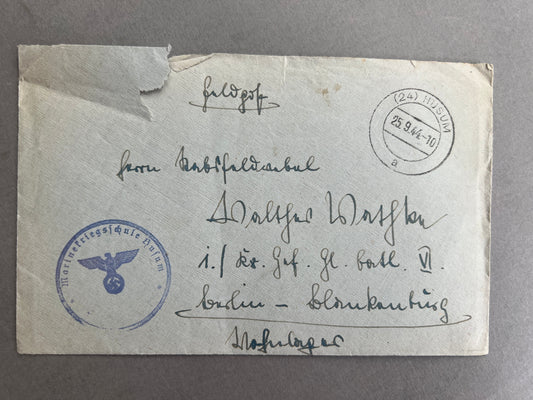 Feldpost
(24) HUSUM
25.9.44-10
a
Herrn Stabsfeldwebel
Walther Wathke
i./ Kr. Gef. Gl. Batl. VI.
Berlin – Blankenburg
Wohnlager
Marinekriegsschule Husum